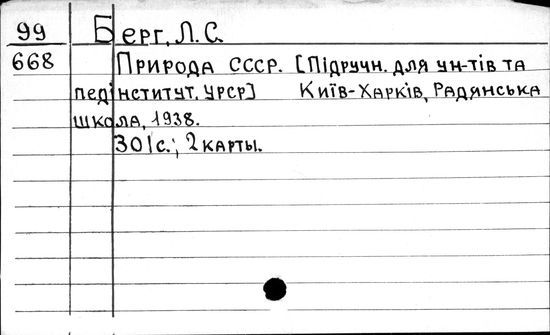 99 Берг, Л. С.
668 Природа СССР. [Підручн. для ун-тів та
педінститут. УРСР] Київ-Харків, Радянська
школа, 1938.
301с.; 2 карты.